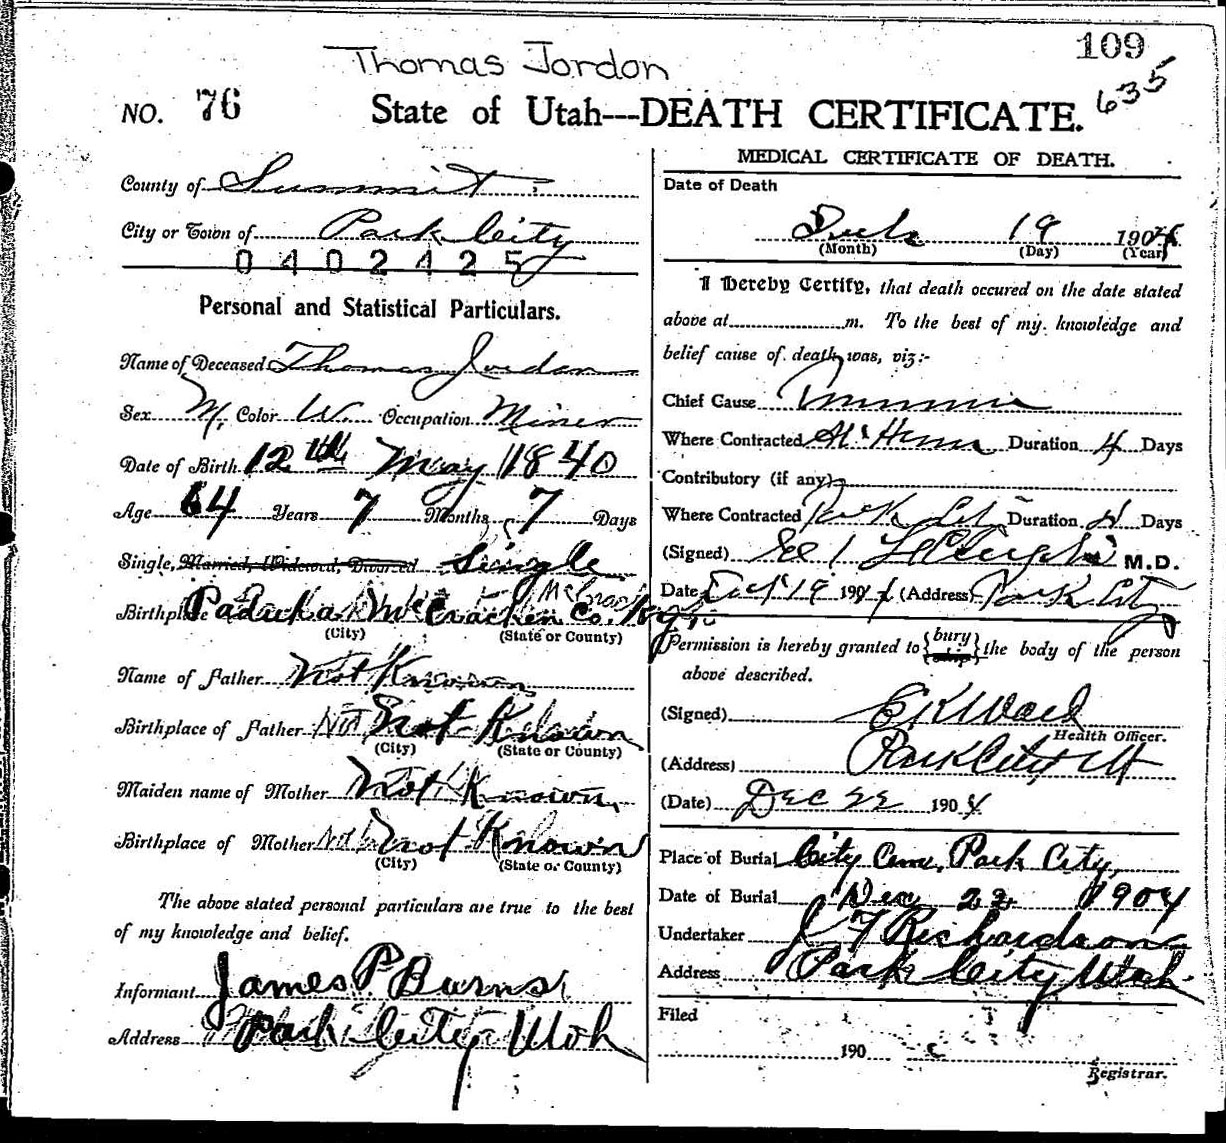 109
Thomas Jordon
635
NO. 76 State of Utah---DEATH CERTIFICATE.
County of Summit
City or Town of Park City
0402425
Personal and Statistical Particulars.
Name of Deceased Thomas Jordan
Sex M. Color W. Occupation Miner
Date of Birth 12th May 1840
Age 64 Years 7 Months 7 Days
Single, Married, Widowed, Divorced Single
Birthplace Paduka McCracken Co. Ky.
(City) (State or County)
Name of Father Not Known
Birthplace of Father Not Known
(City) (State or County)
Maiden name of Mother Not Known
Birthplace of Mother Not Known
(City) (State or County)
The above stated personal particulars are true to the best
of my knowledge and belief.
Informant James P Burns
Address Park City Utah
MEDICAL CERTIFICATE OF DEATH.
Date of Death
19 1904
(Month) (Day) (Year)
I Hereby Certify, that death occured on the date stated
above at m. To the best of my knowledge and
belief cause of death was, viz:-
Chief Cause
Where Contracted Duration 4 Days
Contributory (if any)
Where Contracted Park City Duration Days
(Signed) M.D.
Date 19 1904 (Address) Park City
Permission is hereby granted to {bury ship} the body of the person
above described.
(Signed) E K Ward
Health Officer.
(Address) Park City Ut
(Date) Dec 22 1904
Place of Burial City Cem, Park City,
Date of Burial Dec 22 1904
Undertaker J F Richardson
Address Park City Utah
Filed
190
Registrar.